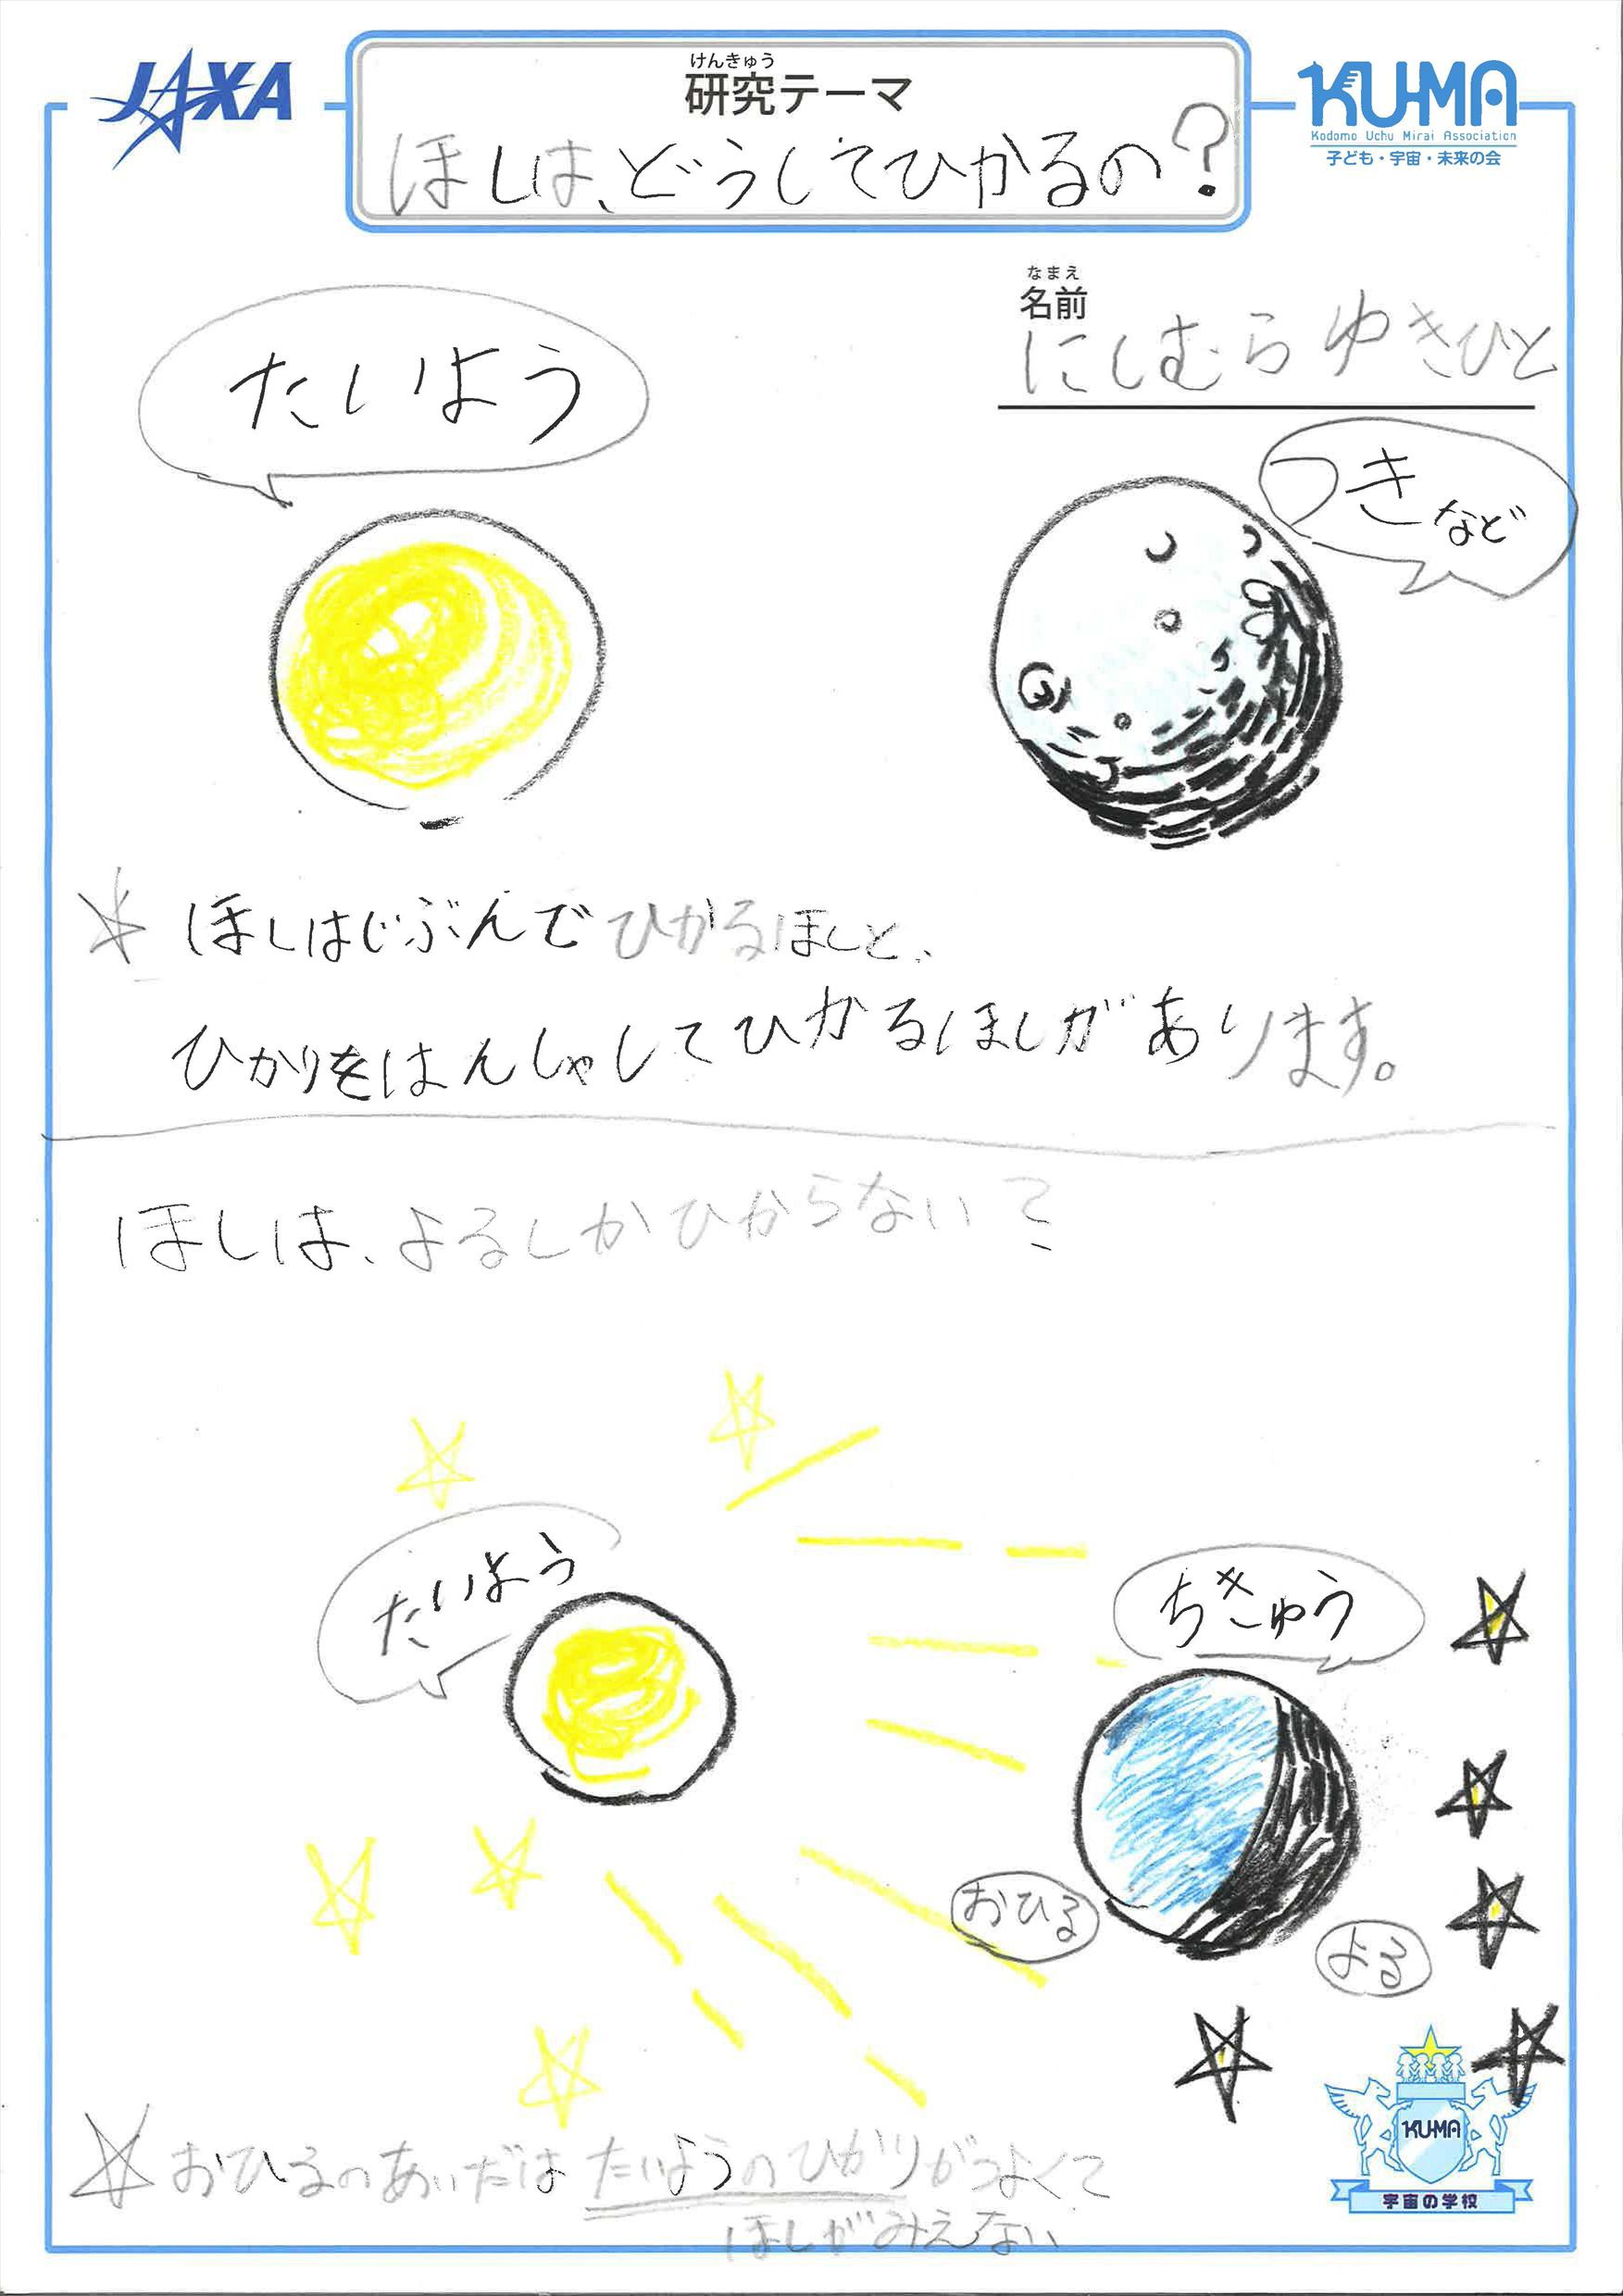 JAXA
けんきゅう
研究テーマ
KU-MA
Kodomo Uchu Mirai Association
子ども・宇宙・未来の会
ほしは、どうしてひかるの?
なまえ
名前
にしむらゆきひと
たいよう
つきなど
ほしはじぶんでひかるほしと、
ひかりをはんしゃしてひかるほしがあります。
ほしは、よるしかひからない?
たいよう
ちきゅう
おひる
よる
KU-MA
宇宙の学校
おひるのあいだはたいようのひかりがつよくて
ほしがみえない